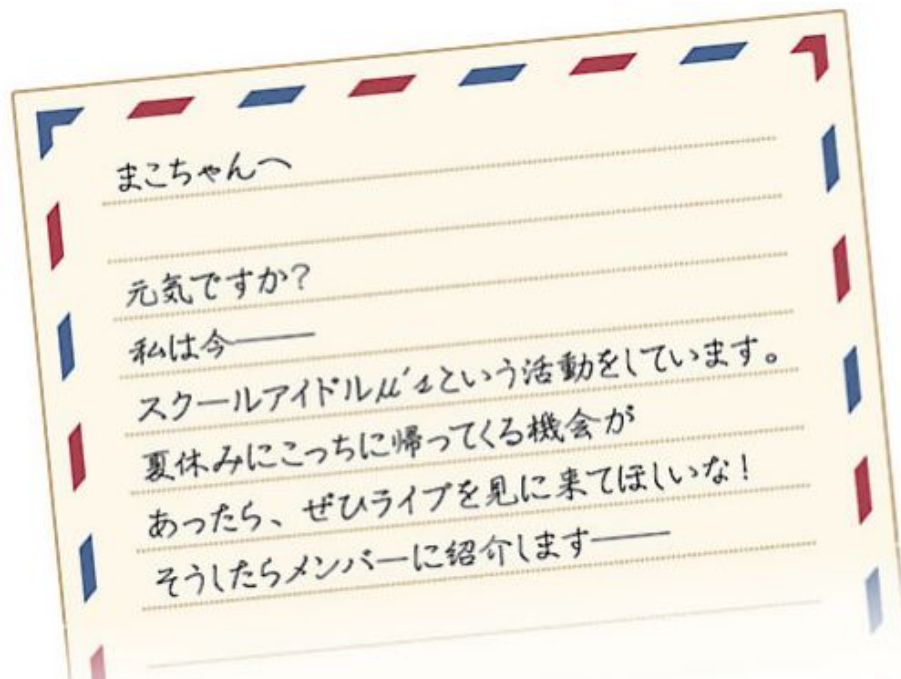 まこちゃんへ
元気ですか?
私は今――
スクールアイドルμ'sという活動をしています。
夏休みにこっちに帰ってくる機会が
あったら、ぜひライブを見に来てほしいな!
そうしたらメンバーに紹介します――